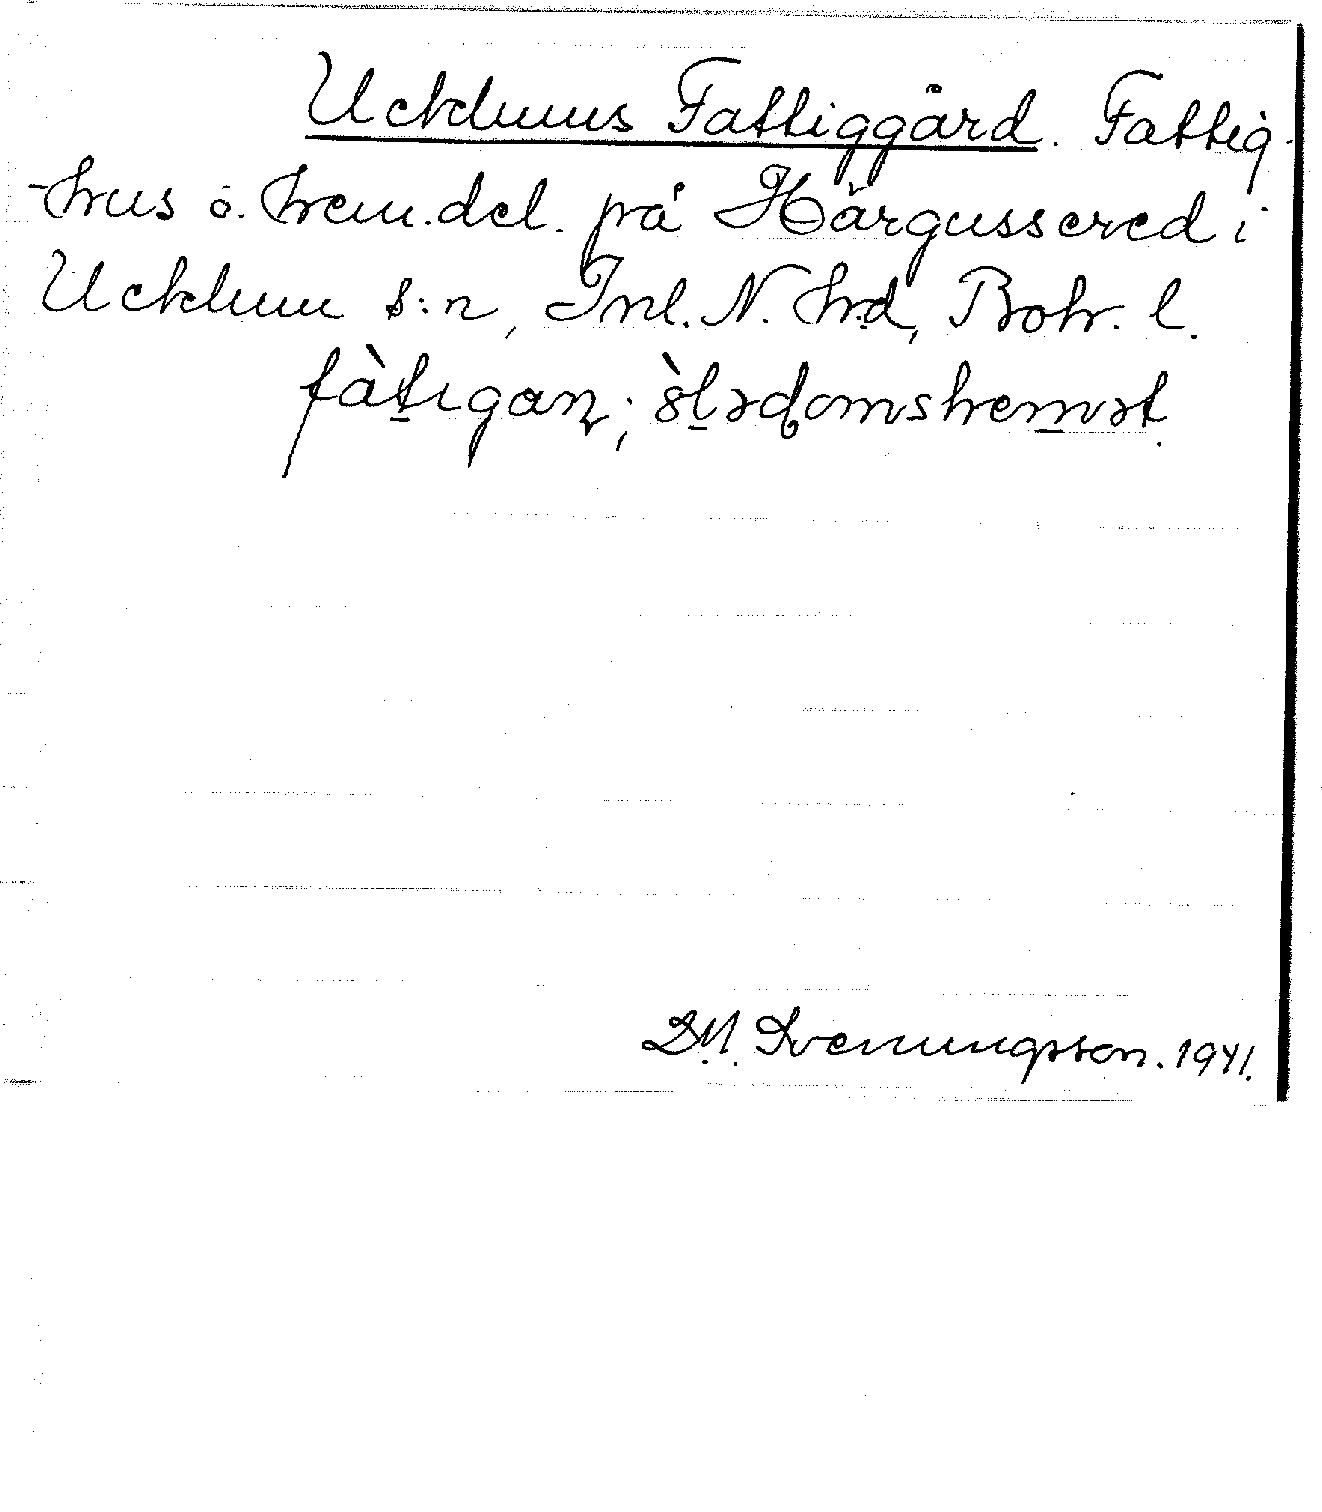 Ucklums Fattiggård. Fattig-
hus o. hem.del. på Härgussered i
Ucklum s:n, Inl. N. hrd, Boh. l.
fàtıgan; ò̀lədomshemət.
D.M. Svenningsson. 1941.